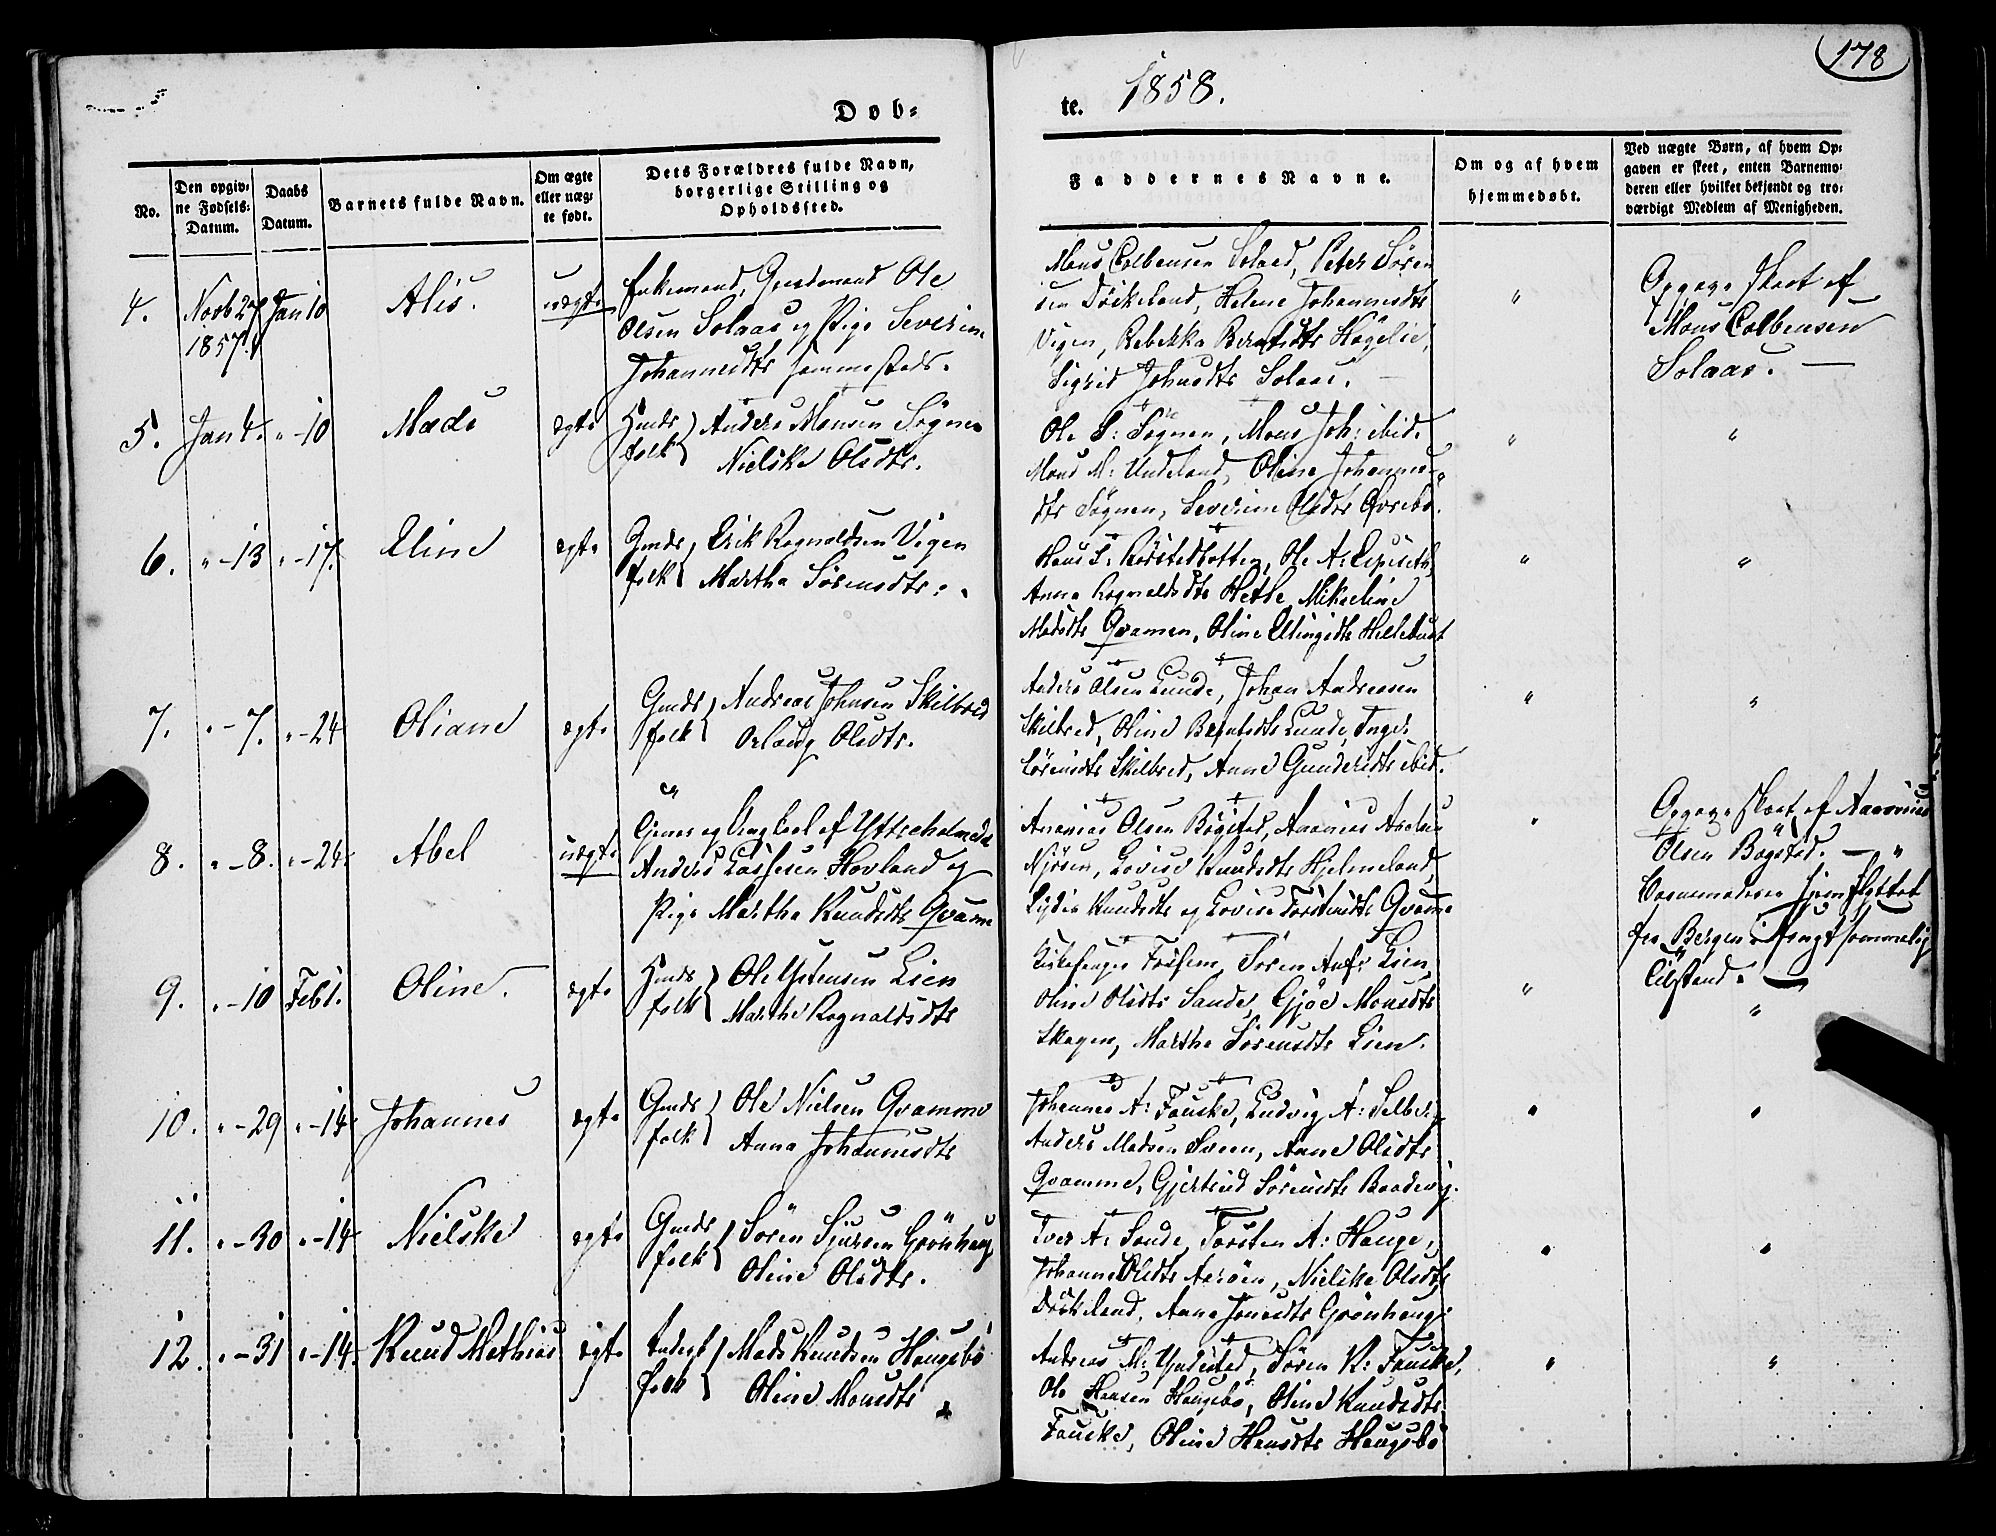 178
Døb-
te. 1858.
No.
Den opgiv-
ne Fødsels-
Datum.
Daabs
Datum.
Barnets fulde Navn.
Om ægte
eller uæg-
te født.
Dets Forældres fulde Navn,
borgerlige Stilling og
Opholdssted.
Faddernes Navne.
Om og af hvem
hjemmedøbt.
Ved uægte Børn, af hvem Op-
gaven er skeet, enten Barnemo-
deren eller hvilket bekjendt og tro-
værdigt Medlem af Menigheden.
4. Novb 27 Jan 10 Alis. uægte Enkemand, Gaardmand Ole
1857.
Olsen Solaas og Pige Severine
Johannesdtr sammesteds.
Mons Colbensen Solaas, Peter Søren
sen Døskeland, Helene Johannesdtr
Vigen, Rebekka Berntsdtr Høgelie,
Sigrid Johnsdtr Solaas.
"
Opgave skeet af
Mons Colbensen
Solaas.
5. Jan 4. " - 10 Mads ægte Gmds
folk Anders Monsen Sögnen
Nielske Olsdtr.
Ole S: Sögnen, Mons Joh: ibid.
Mons M: Undeland, Oline Johannes-
dtr Sögnen, Severine Olsdtr Övrebö.
" "
6. " - 13 " - 17. Eline ægte Gmds
folk Erik Rognaldsen Vigen
Martha Sörensdtr.
Hans S: , Ole A: Espeseth,
Anna Rognaldsdtr Hetle, Mikaeline
Madsdtr Qvamen, Oline Ellingsdtr Hellebust
" "
7. " - 7. " - 24 Oliane ægte Gmds
folk Andreas Johnsen Skilbred
Orlaug Olsdtr.
Anders Olsen Lunde, Johan Andreasen
Skilbred, Oline Berntsdtr Lunde, Inger
Sörensdtr Skilbred, Anne Gundersdtr ibid.
" "
8. " - 8. " - 24. Abel uægte og Ungkarl af Yttreholmedal
Anders Lassesen Hovland og
Pige Martha Knudsdtr Qvamme
Ananias Olsen Bögstad, Ananias Axelsen
Njösen, Lovise Knudsdtr Hjelmeland,
Lydia Knudsdtr og Lovise Torstensdtr Qvamme
"
Opgave skeet af Ananias
Olsen Bögstad. - "
Barnemoderen hjemflyttet
fra Bergen i frugtsommelig
Tilstand.
9. " - 10 Feb 1. Oline. ægte Gmds
folk Ole Ystensen Lien
Marthe Rognaldsdtr
Kirkesanger Fossem, Sören Andr: Lien
Oline Olsdtr Sande, Gjöe Monsdtr
Skagen, Marthe Sörensdtr Lien.
" "
10. " - 29 " - 14 Johannes ægte Gmds
folk Ole Nielsen Qvamme
Anna Johannesdtr
Johannes A: Fauske, Ludvig A: Selberg
Anders Madsen Sveen, Anne Olsdtr
Qvamme, Gjertrud Sörensdtr Baadevig.
" "
11. " - 30 " - 14 Nielske ægte Gmds
folk Sören Sjursen Grönhaug
Oline Olsdtr.
Iver A: Sande, Torsten A: Hauge,
Johanne Olsdtr Aaröen, Nielske Olsdtr
Döskeland, Anna Jonasdtr Grönhaug
" "
12. " - 31 " - 14. Knud Mathias ægte Inderst
folk Mads Knudsen Haugsbö
Oline Monsdtr
Andreas M: Yndestad, Sören K: Fauske,
Ole Hansen Haugsbö, Oline Knudsdtr
Fauske, Oline Hansdtr Haugsbö
" "